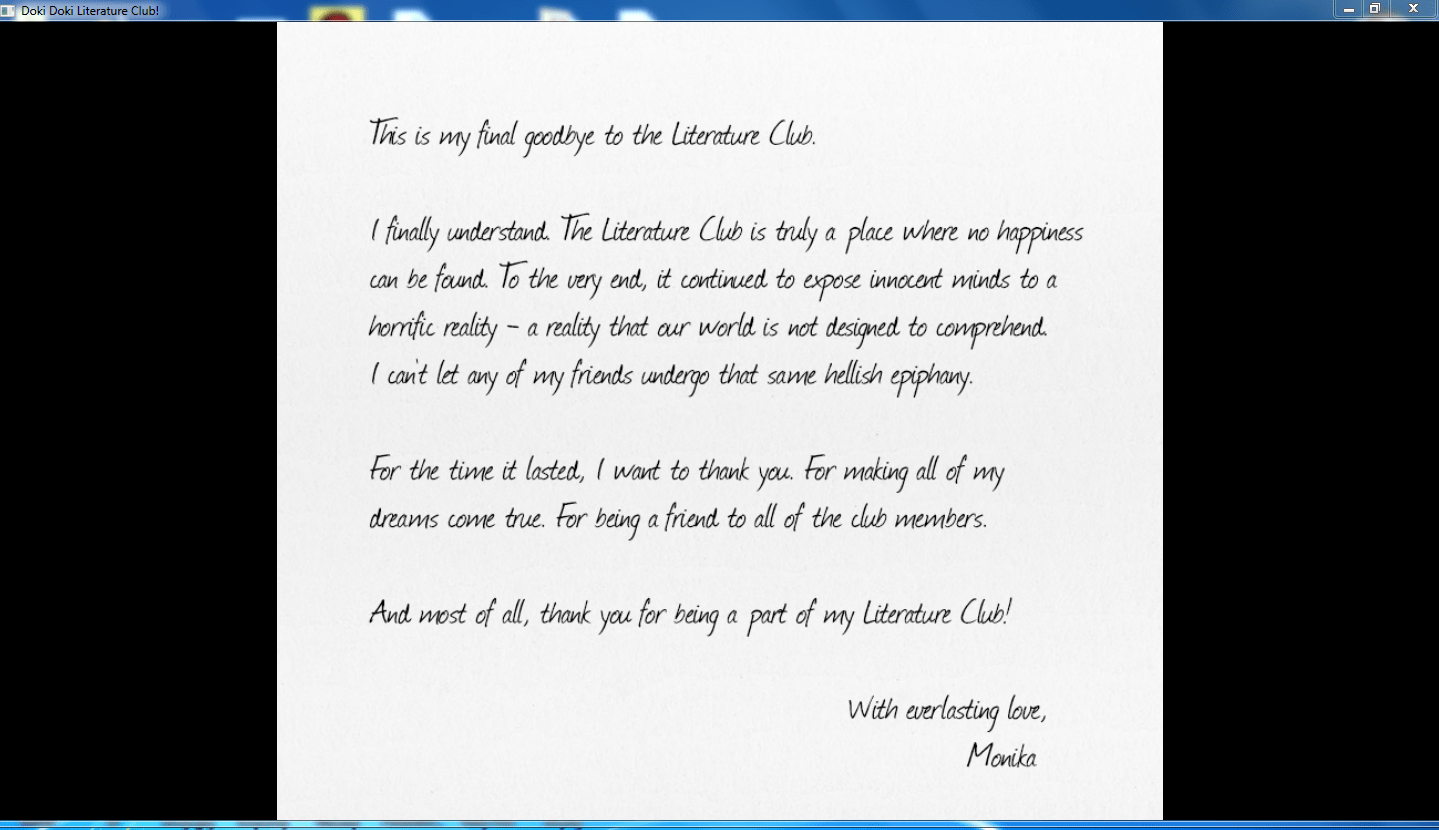 Doki Doki Literature Club!
This is my final goodbye to the Literature Club.
I finally understand. The Literature Club is truly a place where no happiness
can be found. To the very end, it continued to expose innocent minds to a
horrific reality - a reality that our world is not designed to comprehend.
I can't let any of my friends undergo that same hellish epiphany.
For the time it lasted, I want to thank you. For making all of my
dreams come true. For being a friend to all of the club members.
And most of all, thank you for being a part of my Literature Club!
With everlasting love,
Monika